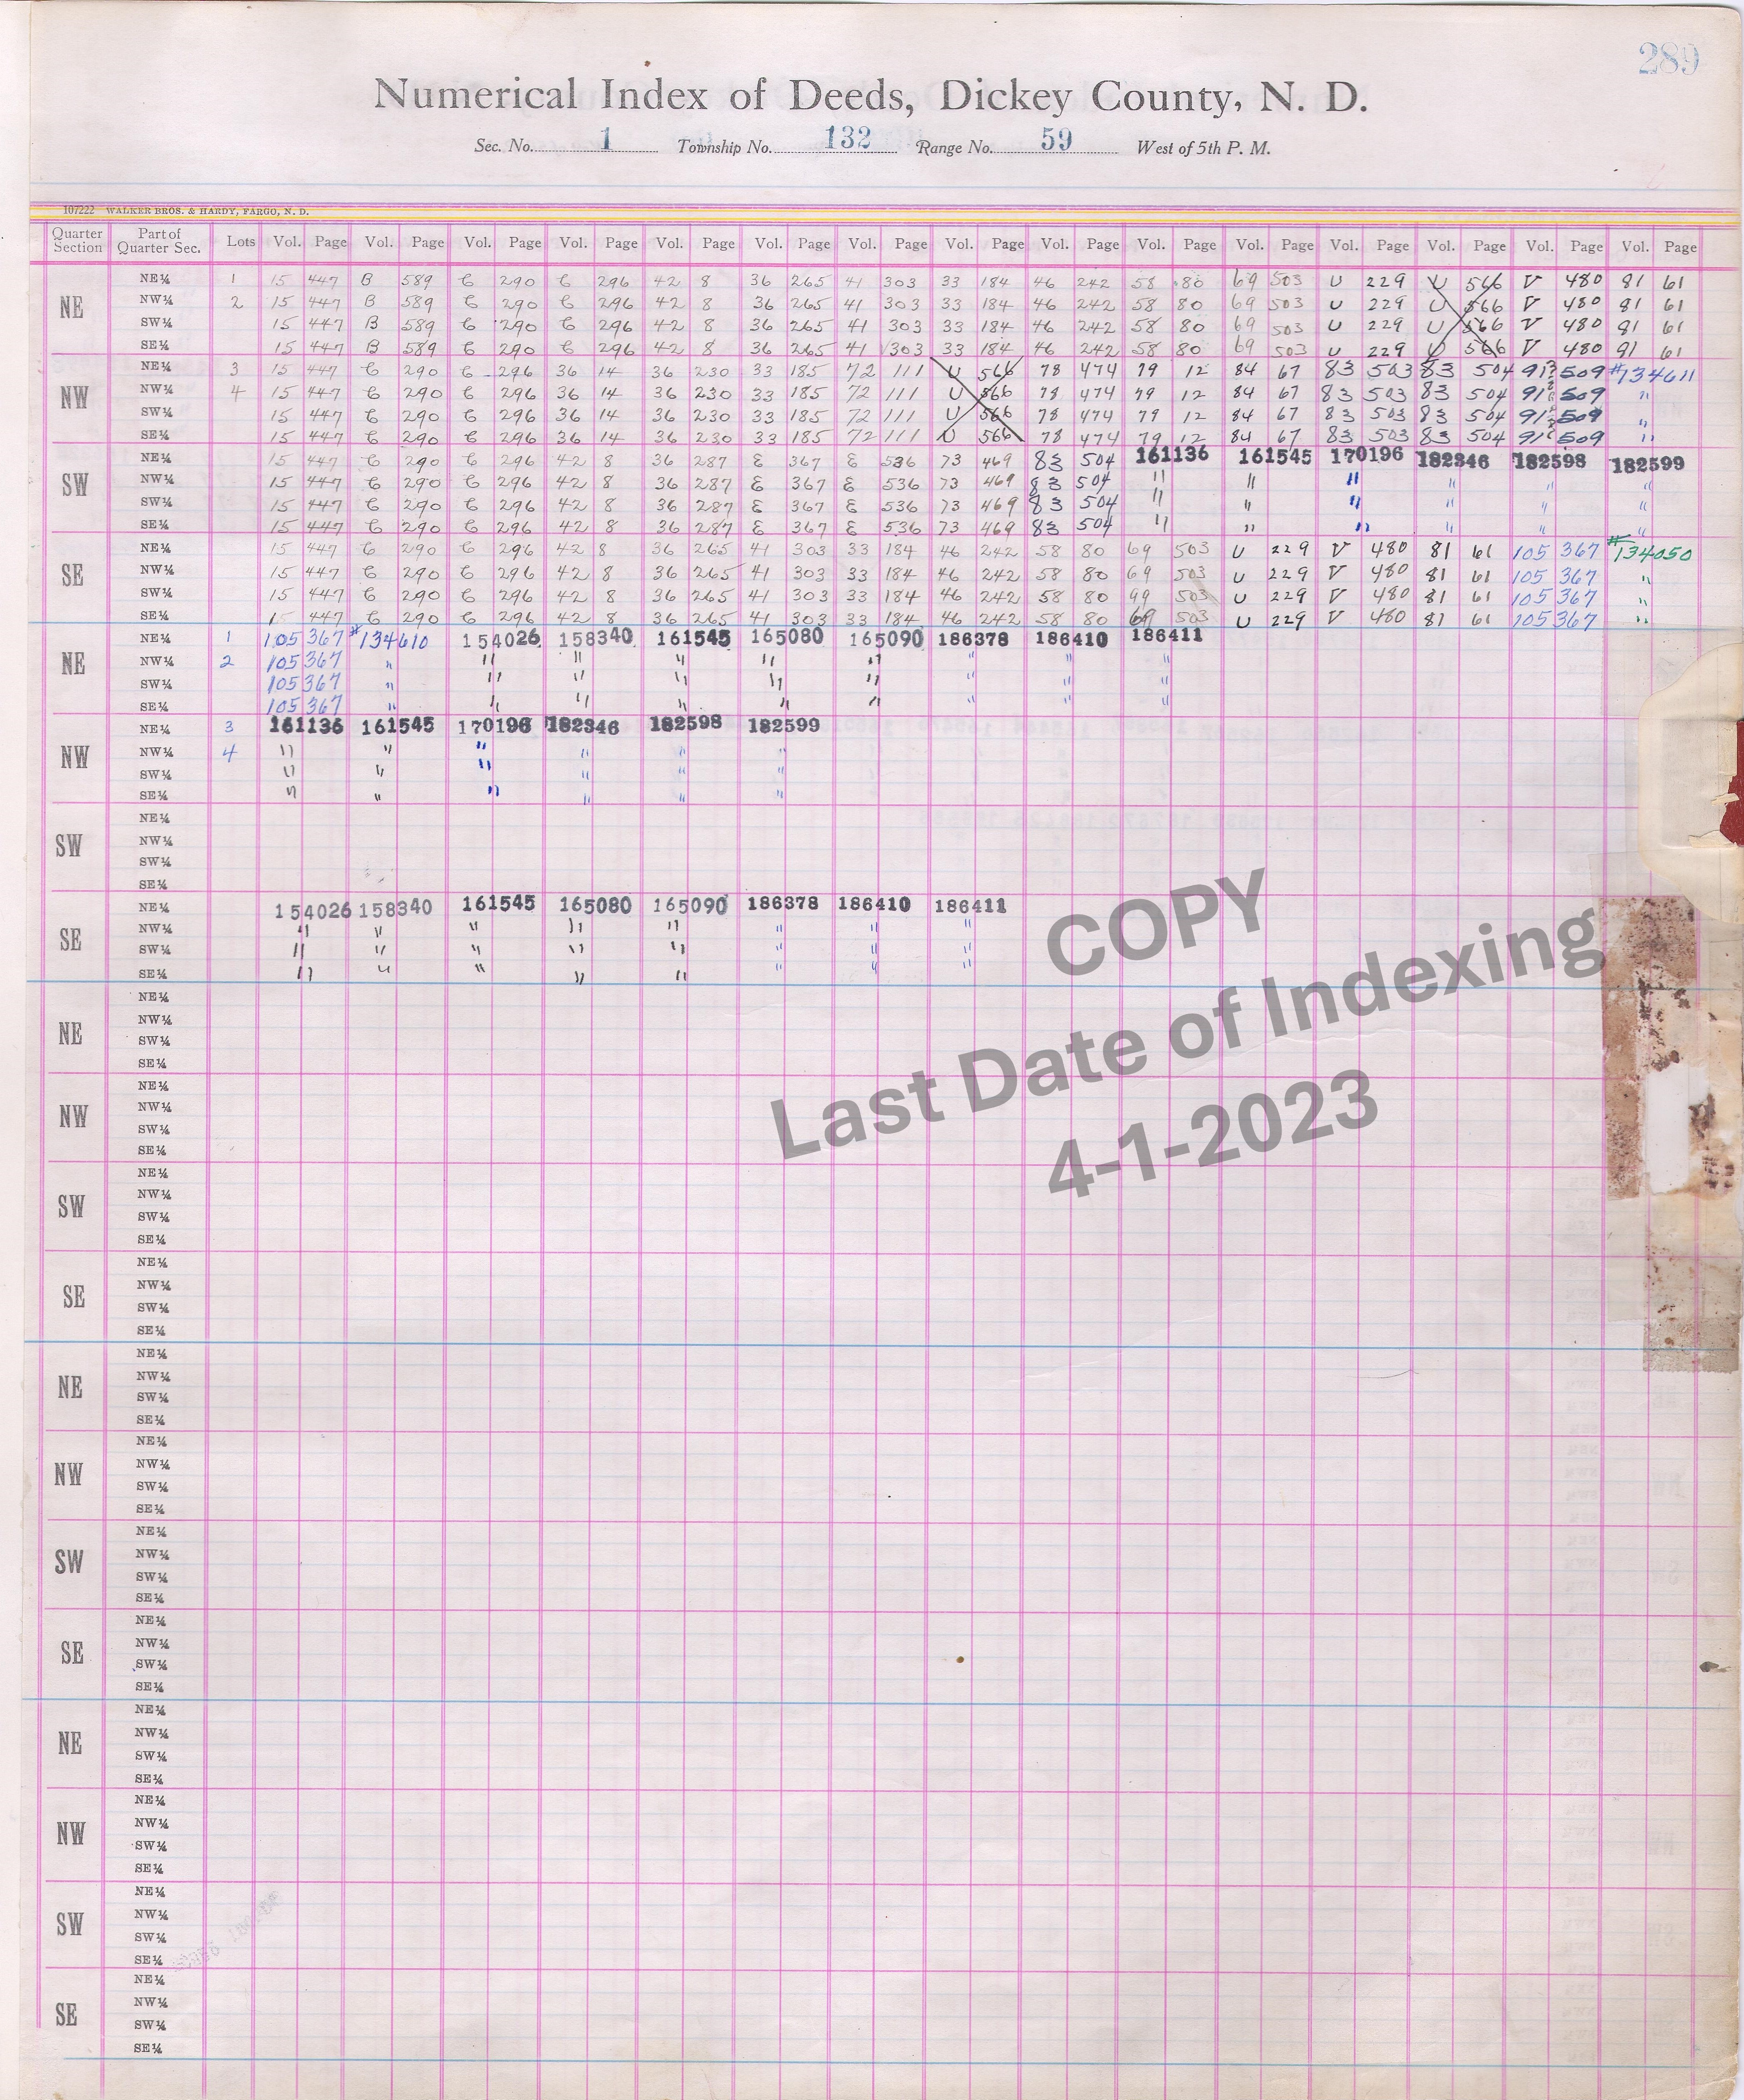 289
Numerical Index of Deeds, Dickey County, N. D.
Sec. No. 1 Township No. 132 Range No. 59 West of 5th P. M.
107222 WALKER BROS. & HARDY, FARGO, N. D.
Quarter Section Part of Quarter Sec. Lots Vol. Page Vol. Page Vol. Page Vol. Page Vol. Page Vol. Page Vol. Page Vol. Page Vol. Page Vol. Page Vol. Page Vol. Page Vol. Page Vol. Page Vol. Page
NE
NE¼ 1 15 447 B 589 C 290 C 296 42 8 36 265 41 303 33 184 46 242 58 80 69 503 U 229 U 566 V 480 81 61
NW¼ 2 15 447 B 589 C 290 C 296 42 8 36 265 41 303 33 184 46 242 58 80 69 503 U 229 U 566 V 480 81 61
SW¼ 15 447 B 589 C 290 C 296 42 8 36 265 41 303 33 184 46 242 58 80 69 503 U 229 U 566 V 480 81 61
SE¼ 15 447 B 589 C 290 C 296 42 8 36 265 41 303 33 184 46 242 58 80 69 503 U 229 U 566 V 480 81 61
NW
NE¼ 3 15 447 C 290 C 296 36 14 36 230 33 185 72 111 U 566 78 474 79 12 84 67 83 503 83 504 91 509 #134611
NW¼ 4 15 447 C 290 C 296 36 14 36 230 33 185 72 111 U 566 78 474 79 12 84 67 83 503 83 504 91 509 "
SW¼ 15 447 C 290 C 296 36 14 36 230 33 185 72 111 U 566 78 474 79 12 84 67 83 503 83 504 91 509 "
SE¼ 15 447 C 290 C 296 36 14 36 230 33 185 72 111 U 566 78 474 79 12 84 67 83 503 83 504 91 509 "
SW
NE¼ 15 447 C 290 C 296 42 8 36 287 E 367 E 536 73 469 83 504 161136 161545 170196 182346 182598 182599
NW¼ 15 447 C 290 C 296 42 8 36 287 E 367 E 536 73 469 83 504 " " " " " "
SW¼ 15 447 C 290 C 296 42 8 36 287 E 367 E 536 73 469 83 504 " " " " " "
SE¼ 15 447 C 290 C 296 42 8 36 287 E 367 E 536 73 469 83 504 " " " " " "
SE
NE¼ 15 447 C 290 C 296 42 8 36 265 41 303 33 184 46 242 58 80 69 503 U 229 V 480 81 61 105 367 #134050
NW¼ 15 447 C 290 C 296 42 8 36 265 41 303 33 184 46 242 58 80 69 503 U 229 V 480 81 61 105 367 "
SW¼ 15 447 C 290 C 296 42 8 36 265 41 303 33 184 46 242 58 80 69 503 U 229 V 480 81 61 105 367 "
SE¼ 15 447 C 290 C 296 42 8 36 265 41 303 33 184 46 242 58 80 69 503 U 229 V 480 81 61 105 367 "
NE
NE¼ 1 105 367 #134610 154026 158340 161545 165080 165090 186378 186410 186411
NW¼ 2 105 367 " " " " " " " " "
SW¼ 105 367 " " " " " " " " "
SE¼ 105 367 " " " " " " " " "
NW
NE¼ 3 161136 161545 170196 182346 182598 182599
NW¼ 4 " " " " " "
SW¼ " " " " " "
SE¼ " " " " " "
SW
NE¼
NW¼
SW¼
SE¼
SE
NE¼ 154026 158340 161545 165080 165090 186378 186410 186411
NW¼ " " " " " " " "
SW¼ " " " " " " " "
SE¼ " " " " " " " "
COPY
Last Date of Indexing
4-1-2023
NE
NE¼
NW¼
SW¼
SE¼
NW
NE¼
NW¼
SW¼
SE¼
SW
NE¼
NW¼
SW¼
SE¼
SE
NE¼
NW¼
SW¼
SE¼
NE
NE¼
NW¼
SW¼
SE¼
NW
NE¼
NW¼
SW¼
SE¼
SW
NE¼
NW¼
SW¼
SE¼
SE
NE¼
NW¼
SW¼
SE¼
NE
NE¼
NW¼
SW¼
SE¼
NW
NE¼
NW¼
SW¼
SE¼
SW
NE¼
NW¼
SW¼
SE¼
SE
NE¼
NW¼
SW¼
SE¼